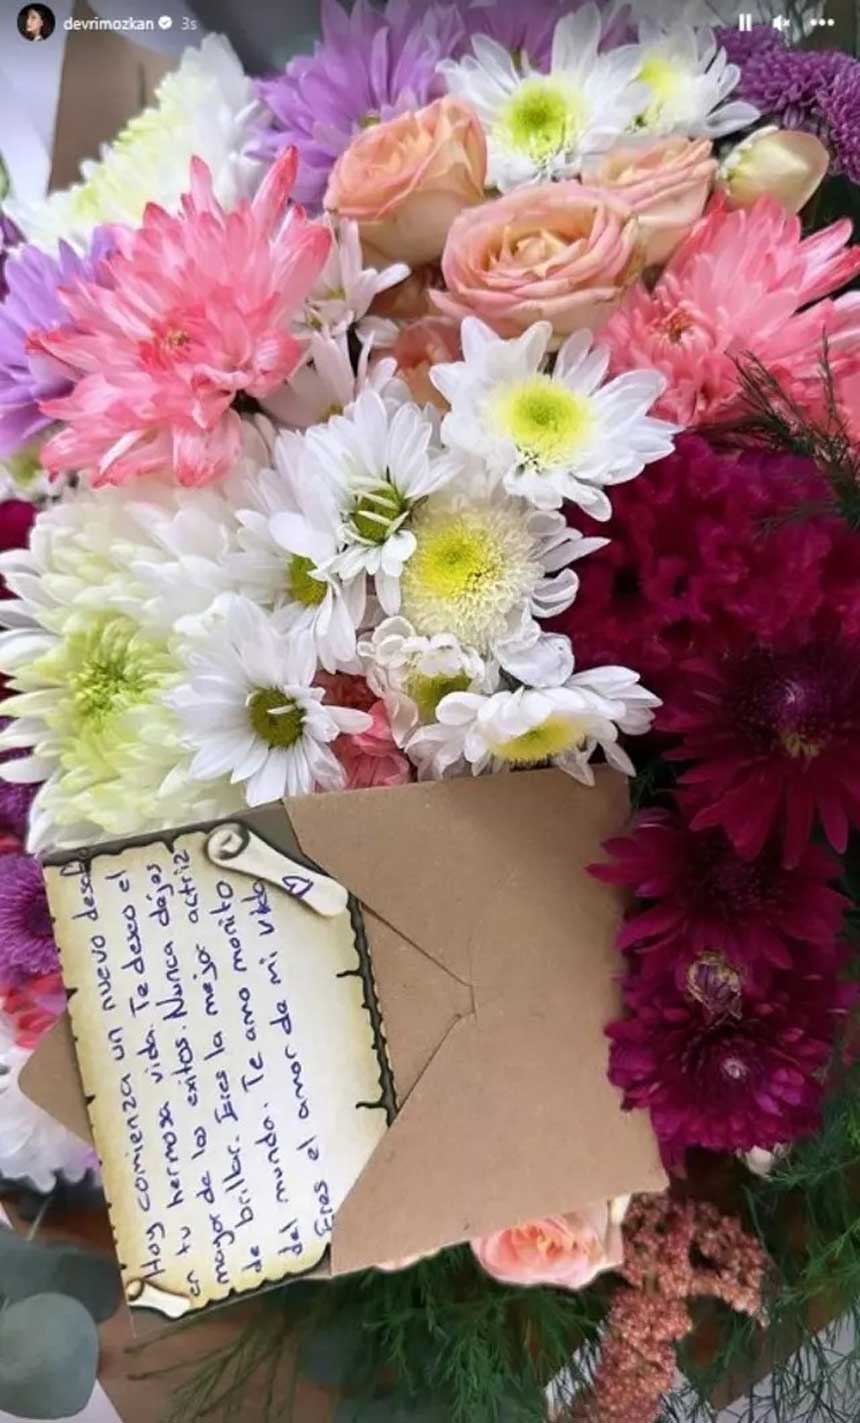 devrimozkan 3s
Hoy comienza un nuevo desafío
en tu hermosa vida. Te deseo el
mayor de los exitos. Nunca dejes
de brillar. Eres la mejor actriz
del mundo. Te amo monito
Eres el amor de mi vida